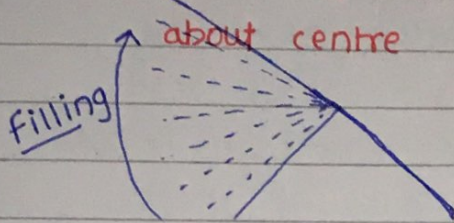 about centre
filling